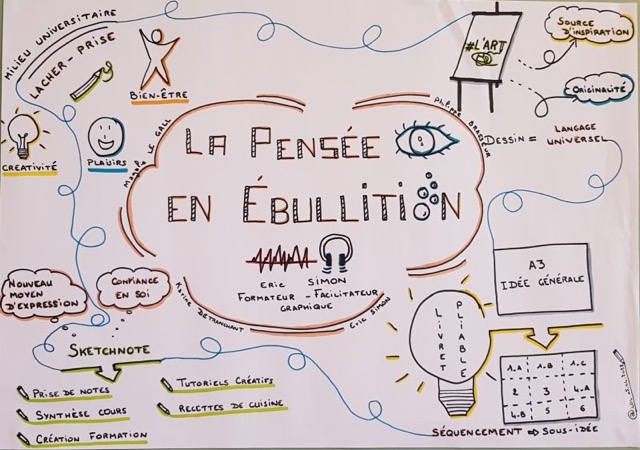 MILIEU UNIVERSITAIRE
LACHER-PRISE
BIEN-ÊTRE
CREATIVITÉ
PLAISIRS
#L'ART
SOURCE
D'INSPIRATION
ORIGINALITÉ
DESSIN = LANGAGE
UNIVERSEL
LE GALL
PHILIPPE
LA PENSÉE
EN ÉBULLITION
ERIC SIMON
FORMATEUR - FACILITATEUR
GRAPHIQUE
KARINE
ERIC SIMON
NOUVEAU
MOYEN
D'EXPRESSION
CONFIANCE
EN SOI
SKETCHNOTE
PRISE DE NOTES
SYNTHÈSE COURS
CRÉATION FORMATION
TUTORIELS CRÉATIFS
RECETTES DE CUISINE
LIVRET
PLIABLE
A3
IDÉE GÉNÉRALE
1.A 1.B 1.C
2 3 4.A
4.B 5 6
SÉQUENCEMENT ⇒ SOUS-IDÉE